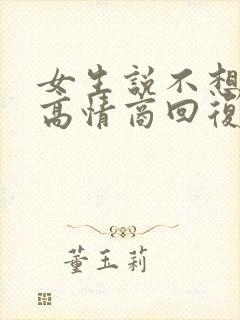 女生説不想
高情商回復
董玉莉